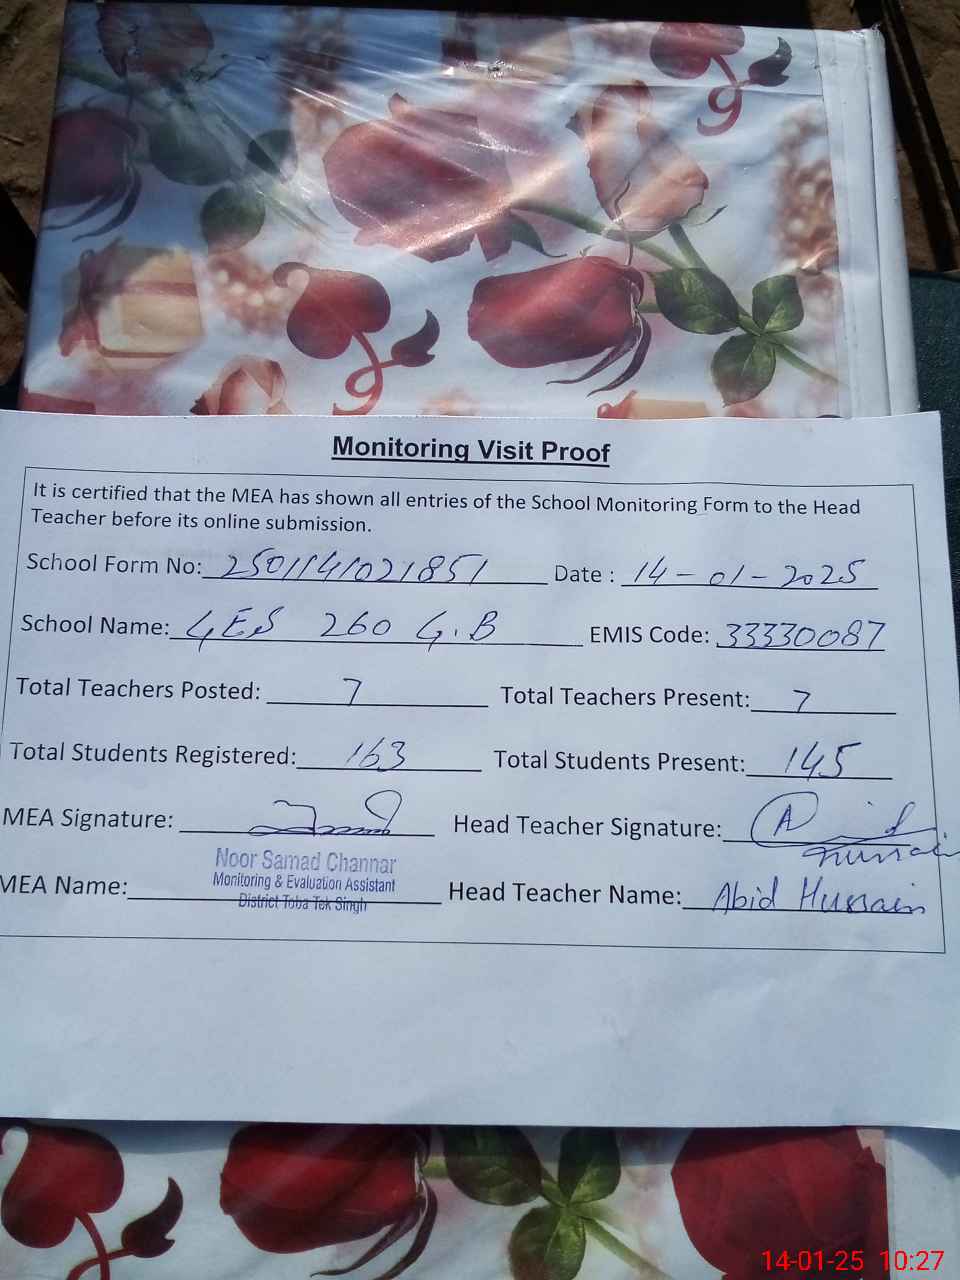 Monitoring Visit Proof
It is certified that the MEA has shown all entries of the School Monitoring Form to the Head
Teacher before its online submission.
School Form No: 2501141021851 Date : 14-01-2025
School Name: GES 260 G.B EMIS Code: 33330087
Total Teachers Posted: 7 Total Teachers Present: 7
Total Students Registered: 163 Total Students Present: 145
MEA Signature: Head Teacher Signature: Abid Hussain
Noor Samad Channar
Monitoring & Evaluation Assistant
District Toba Tek Singh
MEA Name: Head Teacher Name: Abid Hussain
14-01-25 10:27